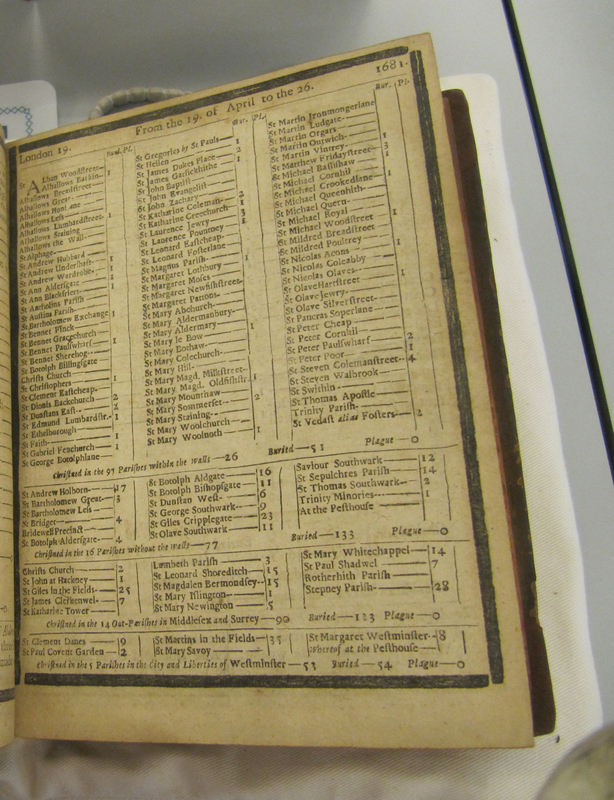 London 19. From the 19. of April to the 26. 1681.
Bur. Pl.
St Alban Woodstreet
Alhallows Barkin 1
Alhallows Breadstreet
Alhallows Great
Alhallows Honilane
Alhallows Less
Alhallows Lumbardstreet 1
Alhallows Staining
Alhallows the Wall
St Alphage
St Andrew Hubbard
St Andrew Undershaft
St Andrew Wardrobe
St Ann Aldersgate
St Ann Blackfriers
St Antholins Parish
St Austins Parish
St Bartholomew Exchange 1
St Bennet Finck
St Bennet Gracechurch
St Bennet Paulswharf 1
St Bennet Sherehog
St Botolph Billingsgate
Christs Church
St Christophers
St Clement Eastcheap
St Dionis Backchurch 2
St Dunstans East 2
St Edmund Lumbardstr. 1
St Ethelborough
St Faith
St Gabriel Fenchurch 1
St George Botolphlane
Bur. Pl.
St Gregories by St Pauls 1
St Hellen 2
St James Dukes Place 1
St James Garlickhithe
St John Baptist
St John Evangelist
St John Zachary
St Katharine Coleman
St Katharine Creechurch
St Laurence Jewry
St Laurence Pountney
St Leonard Eastcheap
St Leonard Fosterlane
St Magnus Parish
St Margaret Lothbury
St Margaret Moses
St Margaret Newfishstreet
St Margaret Pattons
St Mary Abchurch
St Mary Aldermanbury
St Mary Aldermary
St Mary le Bow
St Mary Bothaw
St Mary Colechurch
St Mary Hill
St Mary Magd. Milkstreet
St Mary Magd. Oldfishstr. 1
St Mary Mounthaw
St Mary Sommerset 2
St Mary Staining
St Mary Woolchurch
St Mary Woolnoth 1
Bur. Pl.
St Martin Ironmongerlane
St Martin Ludgate
St Martin Orgars
St Martin Outwich
St Martin Vintrey
St Matthew Fridaystreet
St Michael Bassishaw
St Michael Cornhil
St Michael Crookedlane
St Michael Queenhith
St Michael Quern
St Michael Royal
St Michael Woodstreet
St Mildred Breadstreet
St Mildred Poultrey
St Nicolas Acons
St Nicolas Coleabby
St Nicolas Olaves
St Olave Hartstreet
St Olave Jewry
St Olave Silverstreet
St Pancras Soperlane
St Peter Cheap
St Peter Cornhil
St Peter Paulswharf 2
St Peter Poor 1
St Steven Colemanstreet 4
St Steven Walbrook
St Swithin
St Thomas Apostle
Trinity Parish
St Vedast alias Fosters 2
Christned in the 97 Parishes within the Walls 26 Buried 51 Plague 0
St Andrew Holborn 17
St Bartholomew Great 3
St Bartholomew Less
St Bridget 4
Bridewel Precinct
St Botolph Aldersgate 4
St Botolph Aldgate 16
St Botolph Bishopsgate 11
St Dunstan West 6
St George Southwark 9
St Giles Cripplegate 23
St Olave Southwark 11
Saviour Southwark 12
St Sepulchres Parish 14
St Thomas Southwark 2
Trinity Minories 1
At the Pesthouse
Christned in the 16 Parishes without the Walls 77 Buried 133 Plague 0
Christs Church 2
St John at Hackney 1
St Giles in the Fields 25
St James Clerkenwel 7
St Katharine Tower
Lambeth Parish 3
St Leonard Shoreditch 15
St Magdalen Bermondsey 15
St Mary Islington 1
St Mary Newington 5
St Mary Whitechappel 14
St Paul Shadwel 7
Rotherhith Parish
Stepney Parish 28
Christned in the 14 Out-Parishes in Middlesex and Surrey 90 Buried 123 Plague 0
St Clement Danes 9
St Paul Covent Garden 2
St Martins in the Fields 35
St Mary Savoy
St Margaret Westminster 8
Whereof at the Pesthouse
Christned in the 5 Parishes in the City and Liberties of Westminster 53 Buried 54 Plague 0